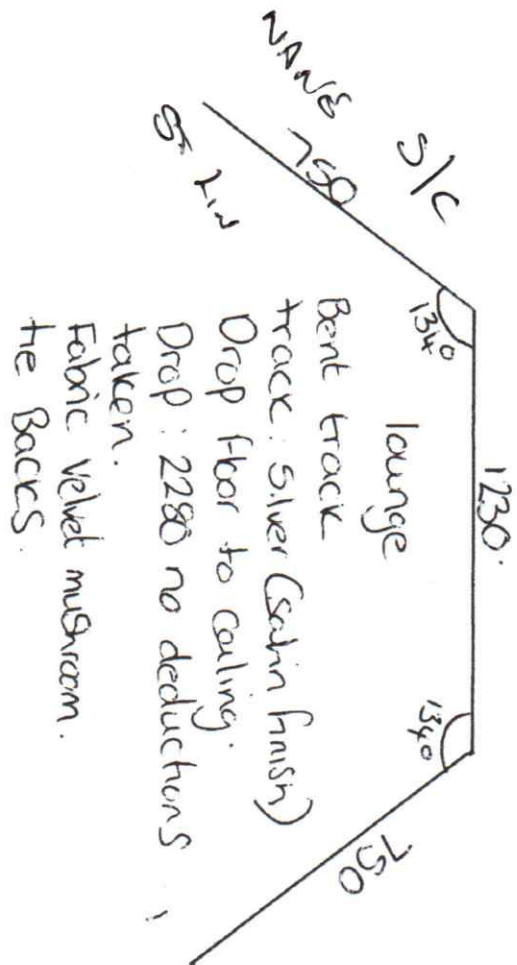 S/C
750
1230.
134°
134°
750
lounge
Bent track
track: Silver (satin finish)
Drop floor to celing.
Drop: 2280 no deductions
taken.
Fabric velvet mushroom.
tie Backs.